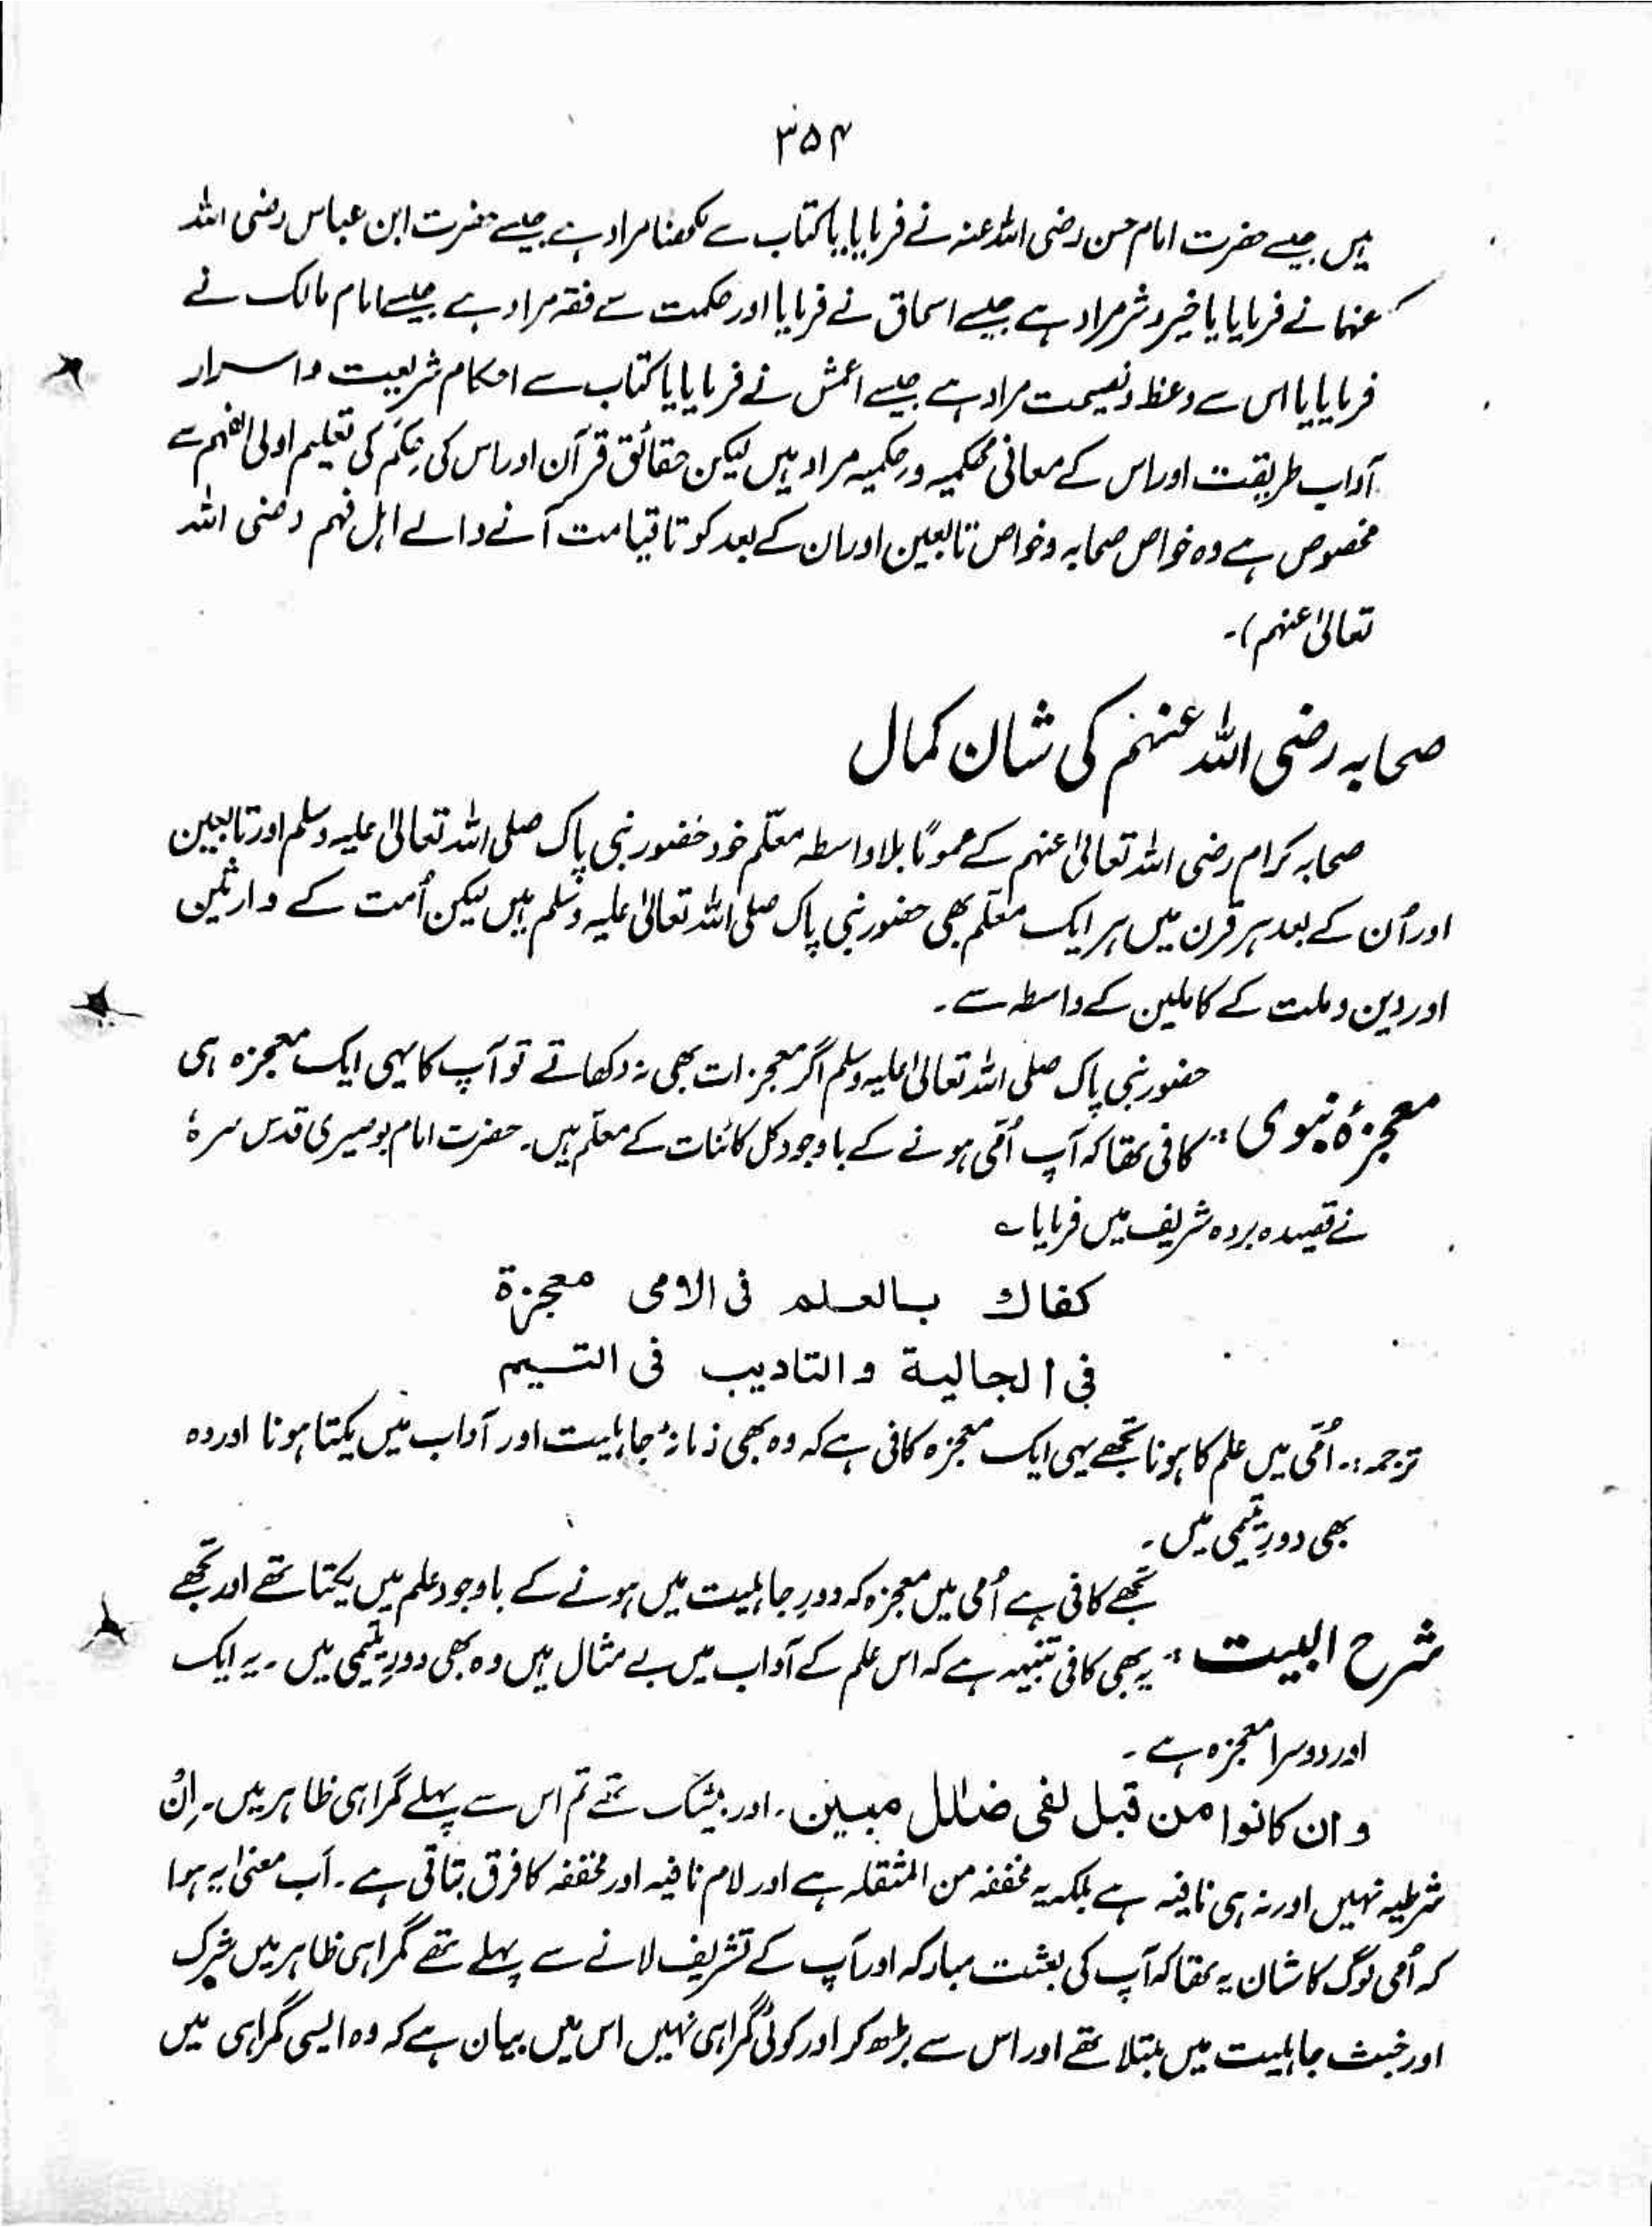 ۳۵۴
ہیں جیسے حضرت امام حسن رضی اللہ عنہ نے فرمایا یا کتاب سے لکھنا مراد ہے جیسے حضرت ابن عباس رضی اللہ
عنہما نے فرمایا یا خیر و شر مراد ہے جیسے اسحاق نے فرمایا اور حکمت سے فقہ مراد ہے جیسے امام مالک نے
فرمایا یا اس سے وعظ و نصیحت مراد ہے جیسے اعمش نے فرمایا یا کتاب سے احکام شریعت و اسرار
آداب طریقت اور اس کے معانی محکمیہ و حکمیہ مراد ہیں لیکن حقائق قرآن اور اس کی حِکَم کی تعلیم اولی الفہم سے
مخصوص ہے وہ خواص صحابہ و خواص تابعین اور ان کے بعد کو تا قیامت آنے والے اہل فہم رضی اللہ
تعالیٰ عنہم)۔
صحابہ رضی اللہ عنہم کی شان کمال
صحابہ کرام رضی اللہ تعالیٰ عنہم کے عموماً بلا واسطہ معلّم خود حضور نبی پاک صلی اللہ تعالیٰ علیہ وسلم اور تابعین
اور اُن کے بعد ہر قرن میں ہر ایک معلّم بھی حضور نبی پاک صلی اللہ تعالیٰ علیہ وسلم ہیں لیکن اُمت کے وارثین
اور دین و ملت کے کاملین کے واسطہ سے۔
حضور نبی پاک صلی اللہ تعالیٰ علیہ وسلم اگر معجزات بھی نہ دکھاتے تو آپ کا یہی ایک معجزہ ہی
معجزۂ نبوی :۔ کافی تھا کہ آپ اُمّی ہونے کے باوجود کل کائنات کے معلّم ہیں۔ حضرت امام بوصیری قدس سرہٗ
نے قصیدہ بردہ شریف میں فرمایا ؎
کفاك بالعلم فی الامی معجزة
فی الجالیة والتادیب فی التیسم
ترجمہ :۔ اُمّی میں علم کا ہونا تجھے یہی ایک معجزہ کافی ہے کہ وہ بھی زمانۂ جاہلیت اور آداب میں یکتا ہونا اور وہ
بھی دورِ یتیمی میں۔
تجھے کافی ہے اُمی میں معجزہ کہ دورِ جاہلیت میں ہونے کے باوجود علم میں یکتا تھے اور تجھے
شرح البیت :۔ یہ بھی کافی تنبیہہ ہے کہ اس علم کے آداب میں بے مثال ہیں وہ بھی دورِ یتیمی میں۔ یہ ایک
اور دوسرا معجزہ ہے۔
و ان کانوا من قبل لفی ضلٰل مبین۔ اور بیشک تھے تم اس سے پہلے گمراہی ظاہر میں۔ اِنْ
شرطیہ نہیں اور نہ ہی نافیہ ہے بلکہ یہ مخففہ من المثقلہ ہے اور لام نافیہ اور مخففہ کا فرق بتاتی ہے۔ اب معنیٰ یہ ہوا
کہ اُمی لوگ کا شان یہ تھا کہ آپ کی بعثت مبارکہ اور آپ کے تشریف لانے سے پہلے تھے گمراہی ظاہر میں شرک
اور خبث جاہلیت میں مبتلا تھے اور اس سے بڑھ کر اور کوئی گمراہی نہیں اس میں بیان ہے کہ وہ ایسی گمراہی میں